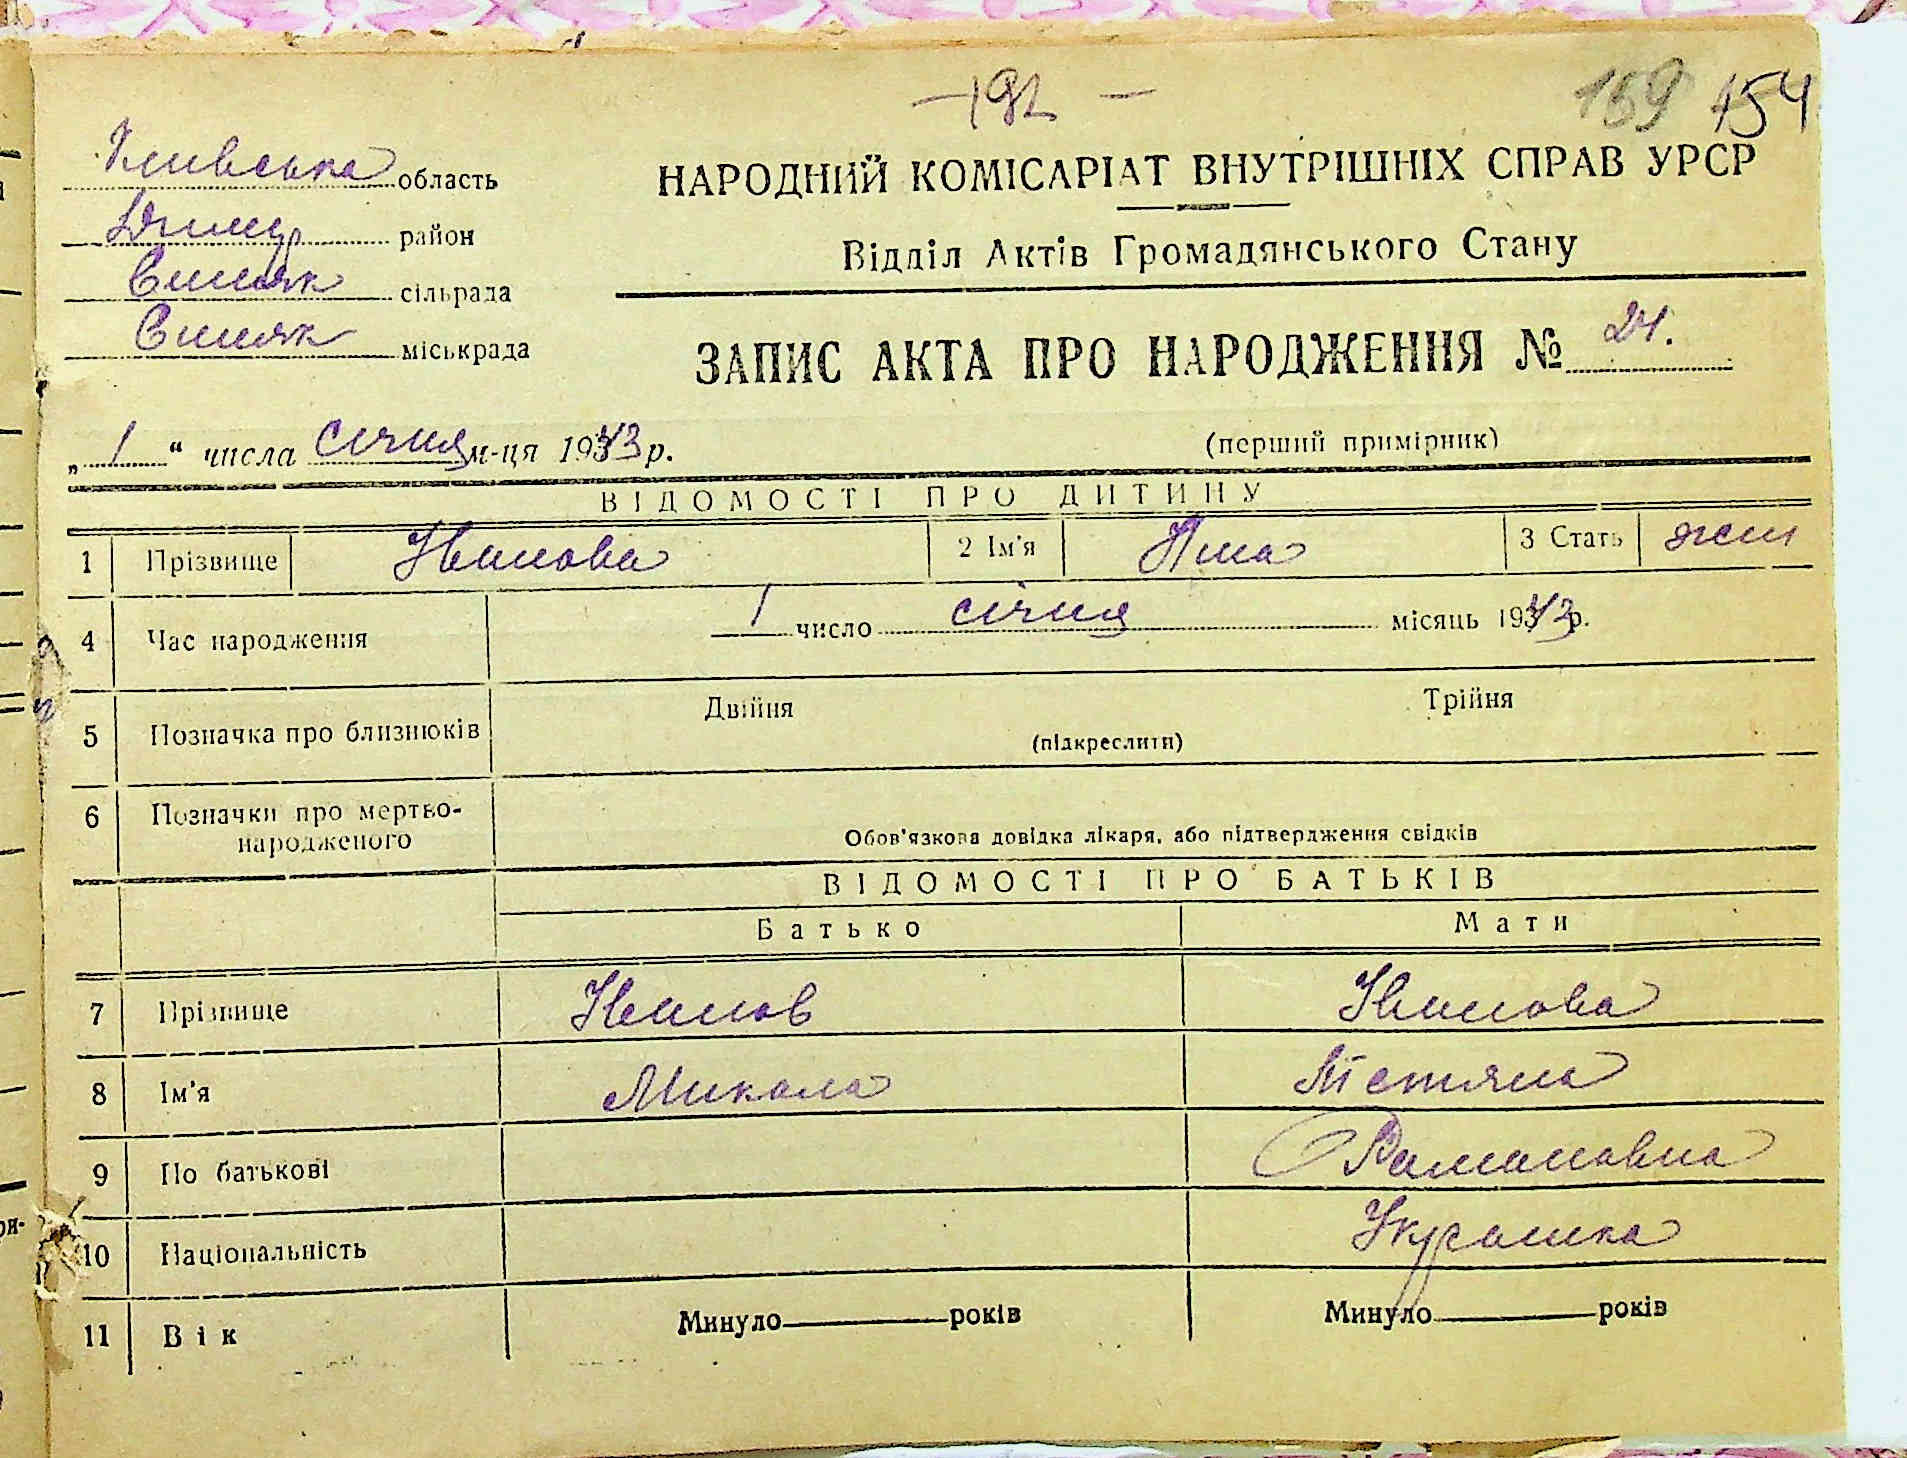 -192-
159 154
Київська область
Димер район
Синяк сільрада
Синяк міськрада
НАРОДНИЙ КОМІСАРІАТ ВНУТРІШНІХ СПРАВ УРСР
Відділ Актів Громадянського Стану
ЗАПИС АКТА ПРО НАРОДЖЕННЯ № 24.
„1“ числа січня м-ця 1943 р.
(перший примірник)
ВІДОМОСТІ ПРО ДИТИНУ
1 Прізвище Іванова 2 Ім'я Ніна 3 Стать жін
4 Час народження 1 число січня місяць 1943 р.
5 Позначка про близнюків Двійня Трійня
(підкреслити)
6 Позначки про мертво-
народженого
Обов'язкова довідка лікаря, або підтвердження свідків
ВІДОМОСТІ ПРО БАТЬКІВ
Батько Мати
7 Прізвище Іванов Іванова
8 Ім'я Микола Тетяна
9 По батькові Романовна
10 Національність Українка
11 Вік Минуло років Минуло років